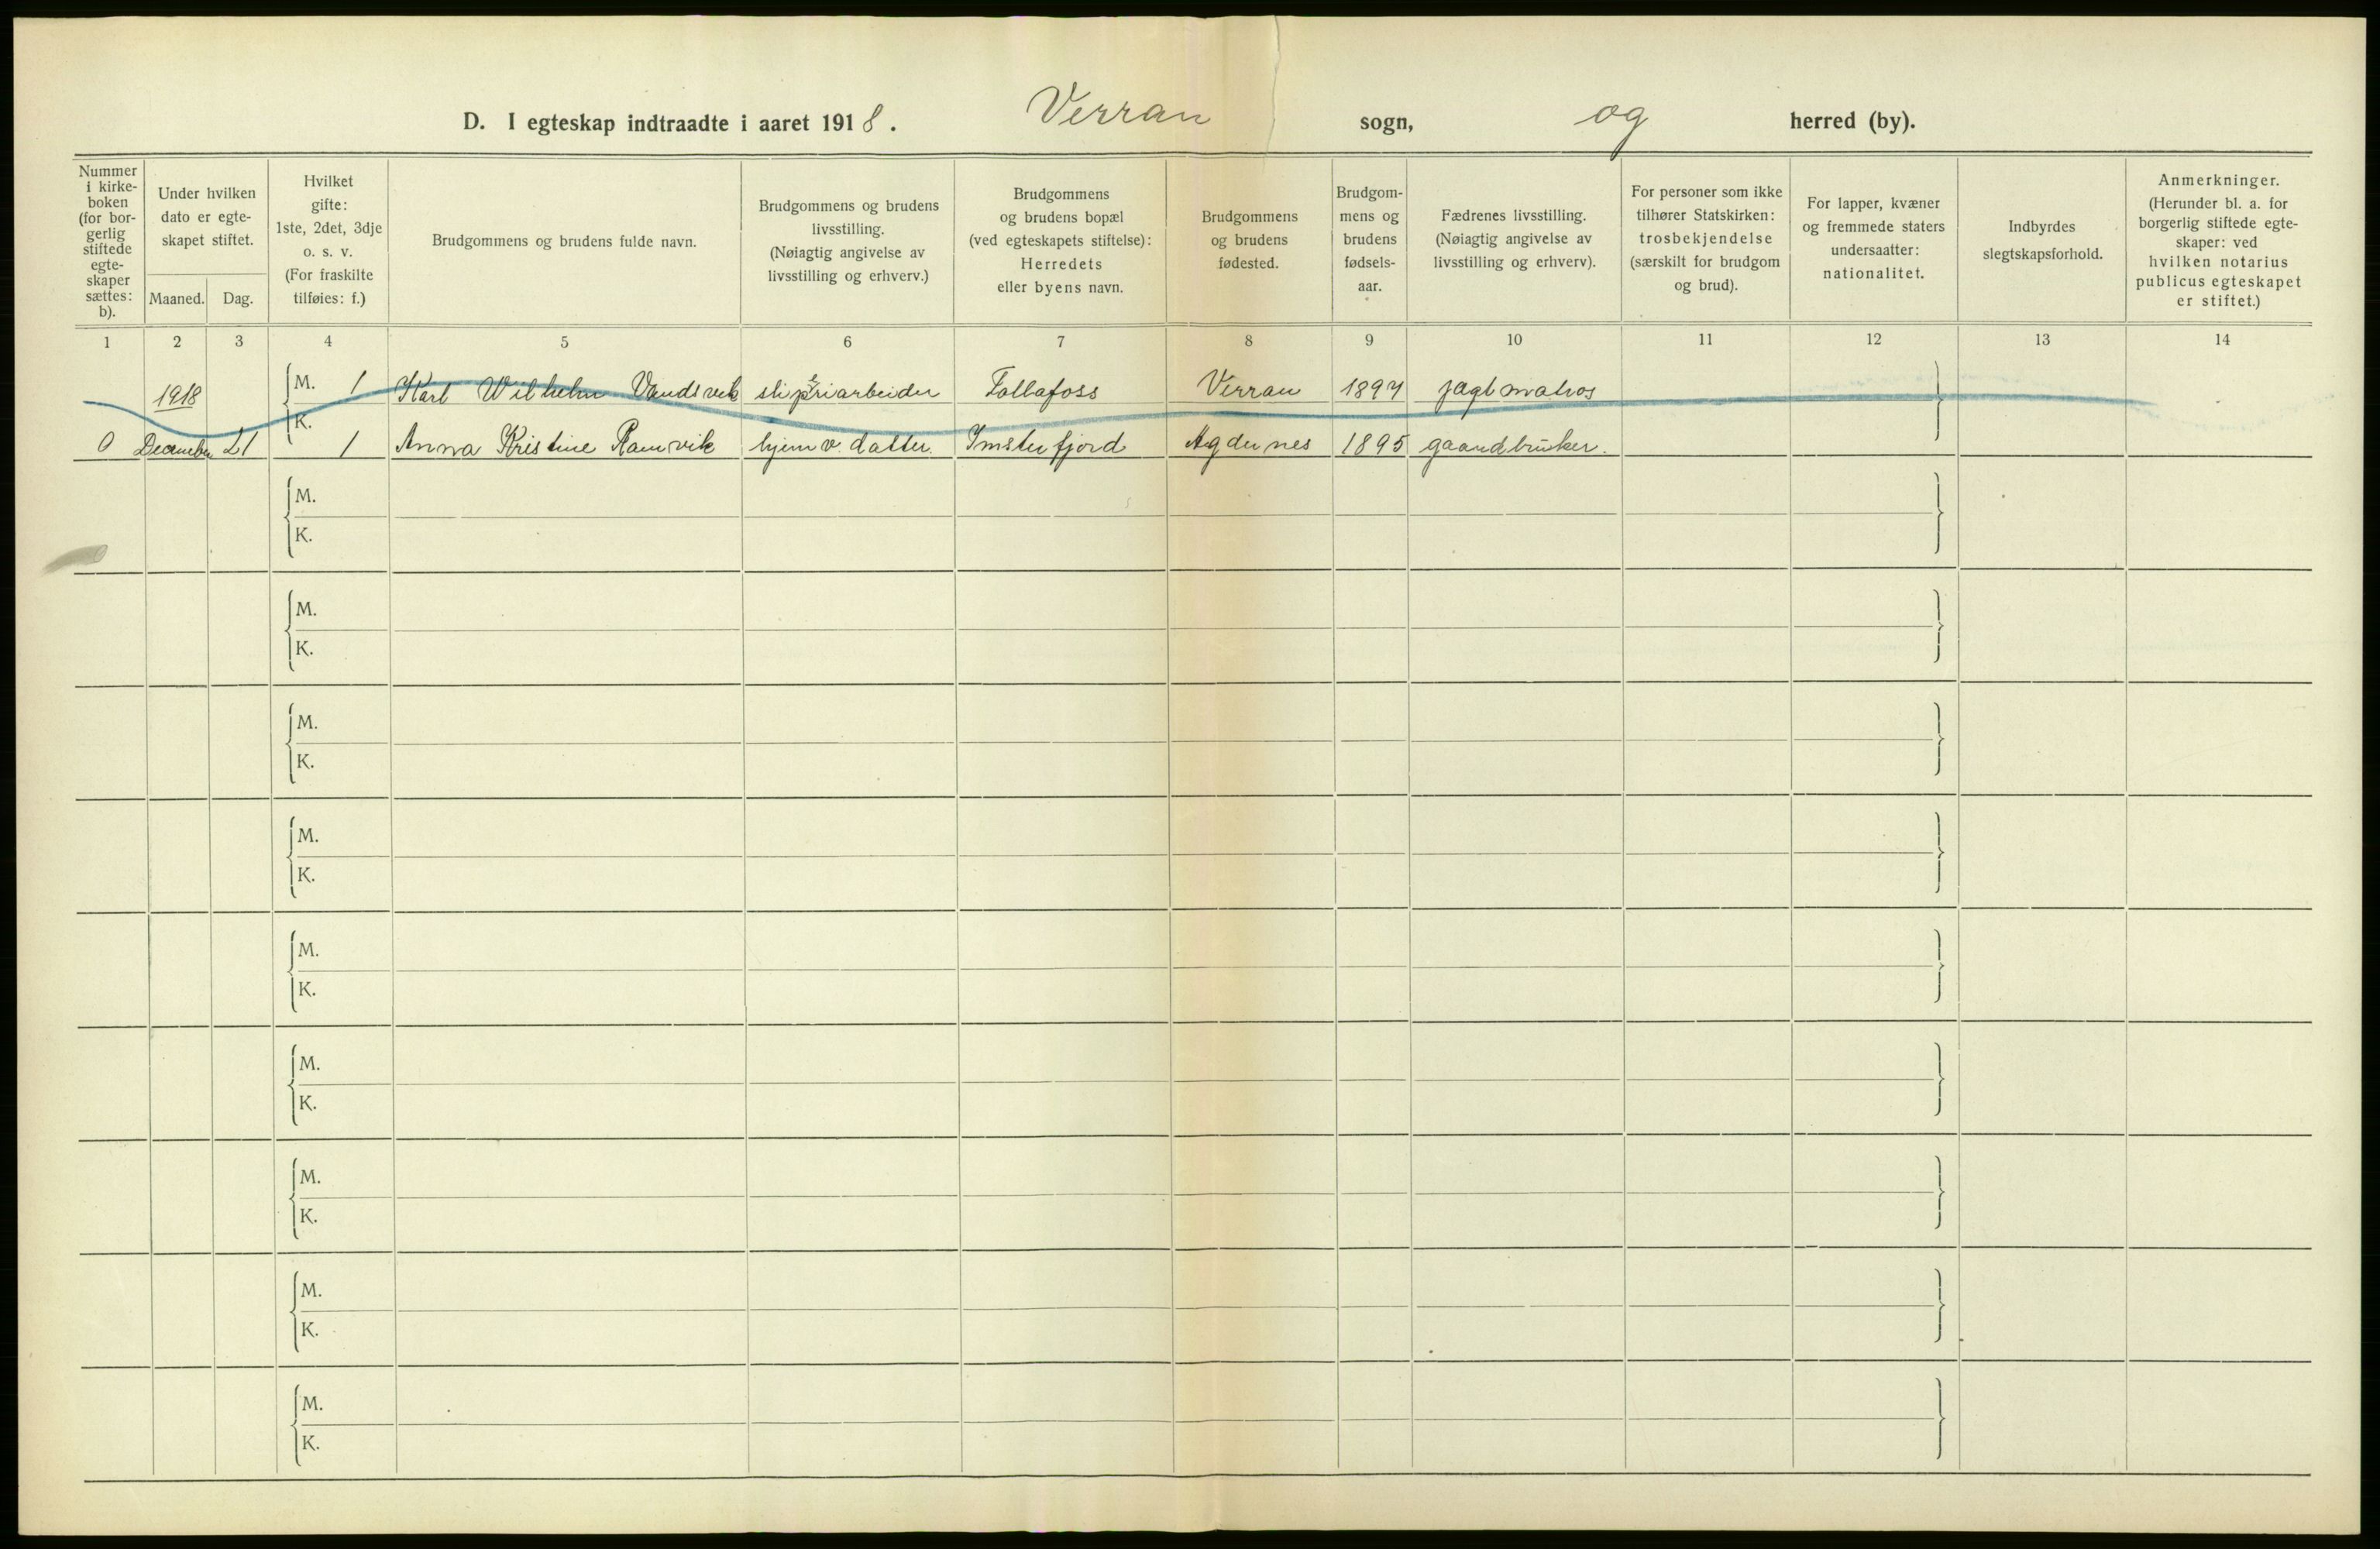 D. I egteskap indtraadte i aaret 1918. Verran sogn, og herred (by).
Nummer i kirke-boken (for bor-gerlig stiftede egte-skaper sættes: b).
Under hvilken dato er egte-skapet stiftet.
Maaned. Dag.
Hvilket gifte: 1ste, 2det, 3dje o. s. v. (For fraskilte tilføies: f.)
Brudgommens og brudens fulde navn.
Brudgommens og brudens livsstilling. (Nøiagtig angivelse av livsstilling og erhverv.)
Brudgommens og brudens bopæl (ved egteskapets stiftelse): Herredets eller byens navn.
Brudgommens og brudens fødested.
Brudgom-mens og brudens fødsels-aar.
Fædrenes livsstilling. (Nøiagtig angivelse av livsstilling og erhverv).
For personer som ikke tilhører Statskirken: trosbekjendelse (særskilt for brudgom og brud).
For lapper, kvæner og fremmede staters undersaatter: nationalitet.
Indbyrdes slegtskapsforhold.
Anmerkninger. (Herunder bl. a. for borgerlig stiftede egte-skaper: ved hvilken notarius publicus egteskapet er stiftet.)
1 2 3 4 5 6 7 8 9 10 11 12 13 14
1918 M. 1 Karl Wilhelm Vandsvik sliperiarbeider Follafoss Verran 1897 jagtmatros
K.
0 December 21 1 Anna Kristine Ramvik hjemv. datter. Imsterfjord Agdenes 1895 gaardbruker.
M.
K.
M.
K.
M.
K.
M.
K.
M.
K.
M.
K.
M.
K.
M.
K.
M.
K.